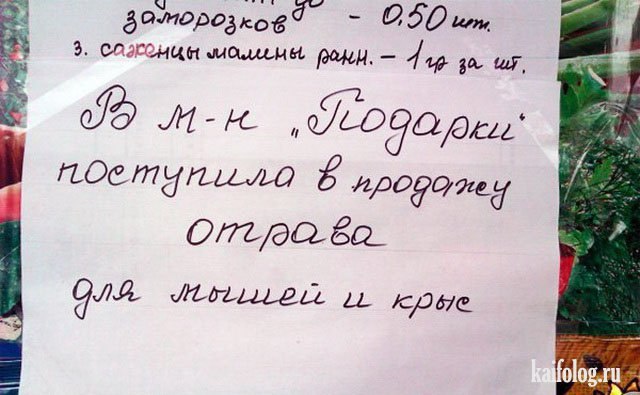 заморозков - 0,50 шт.
3. саженцы малины ранн. - 1 гр за шт.
В м-н „Подарки"
поступила в продажу
отрава
для мышей и крыс
kaifolog.ru